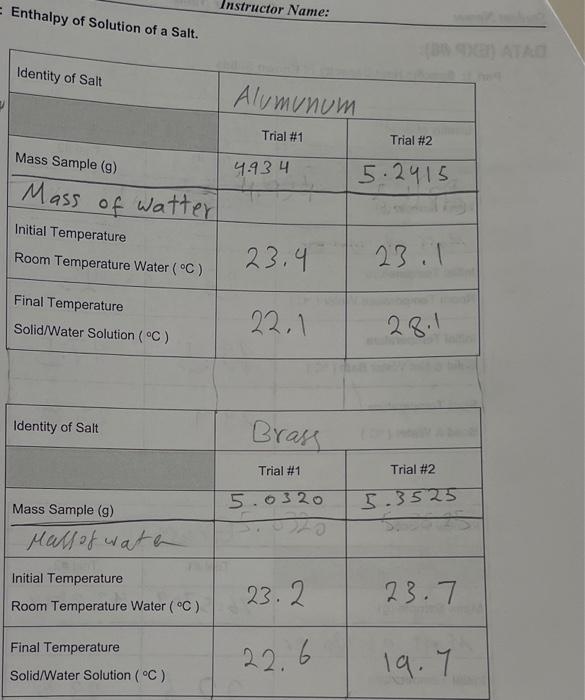 Instructor Name:
: Enthalpy of Solution of a Salt.
Identity of Salt
Alumunum
Trial #1 Trial #2
Mass Sample (g) 4.934 5.2415
Mass of watter
Initial Temperature
Room Temperature Water (°C) 23.4 23.1
Final Temperature
Solid/Water Solution (°C) 22.1 28.1
Identity of Salt Brass
Trial #1 Trial #2
Mass Sample (g) 5.0320 5.3525
Mass of wate
Initial Temperature
Room Temperature Water (°C) 23.2 23.7
Final Temperature
Solid/Water Solution (°C) 22.6 19.7